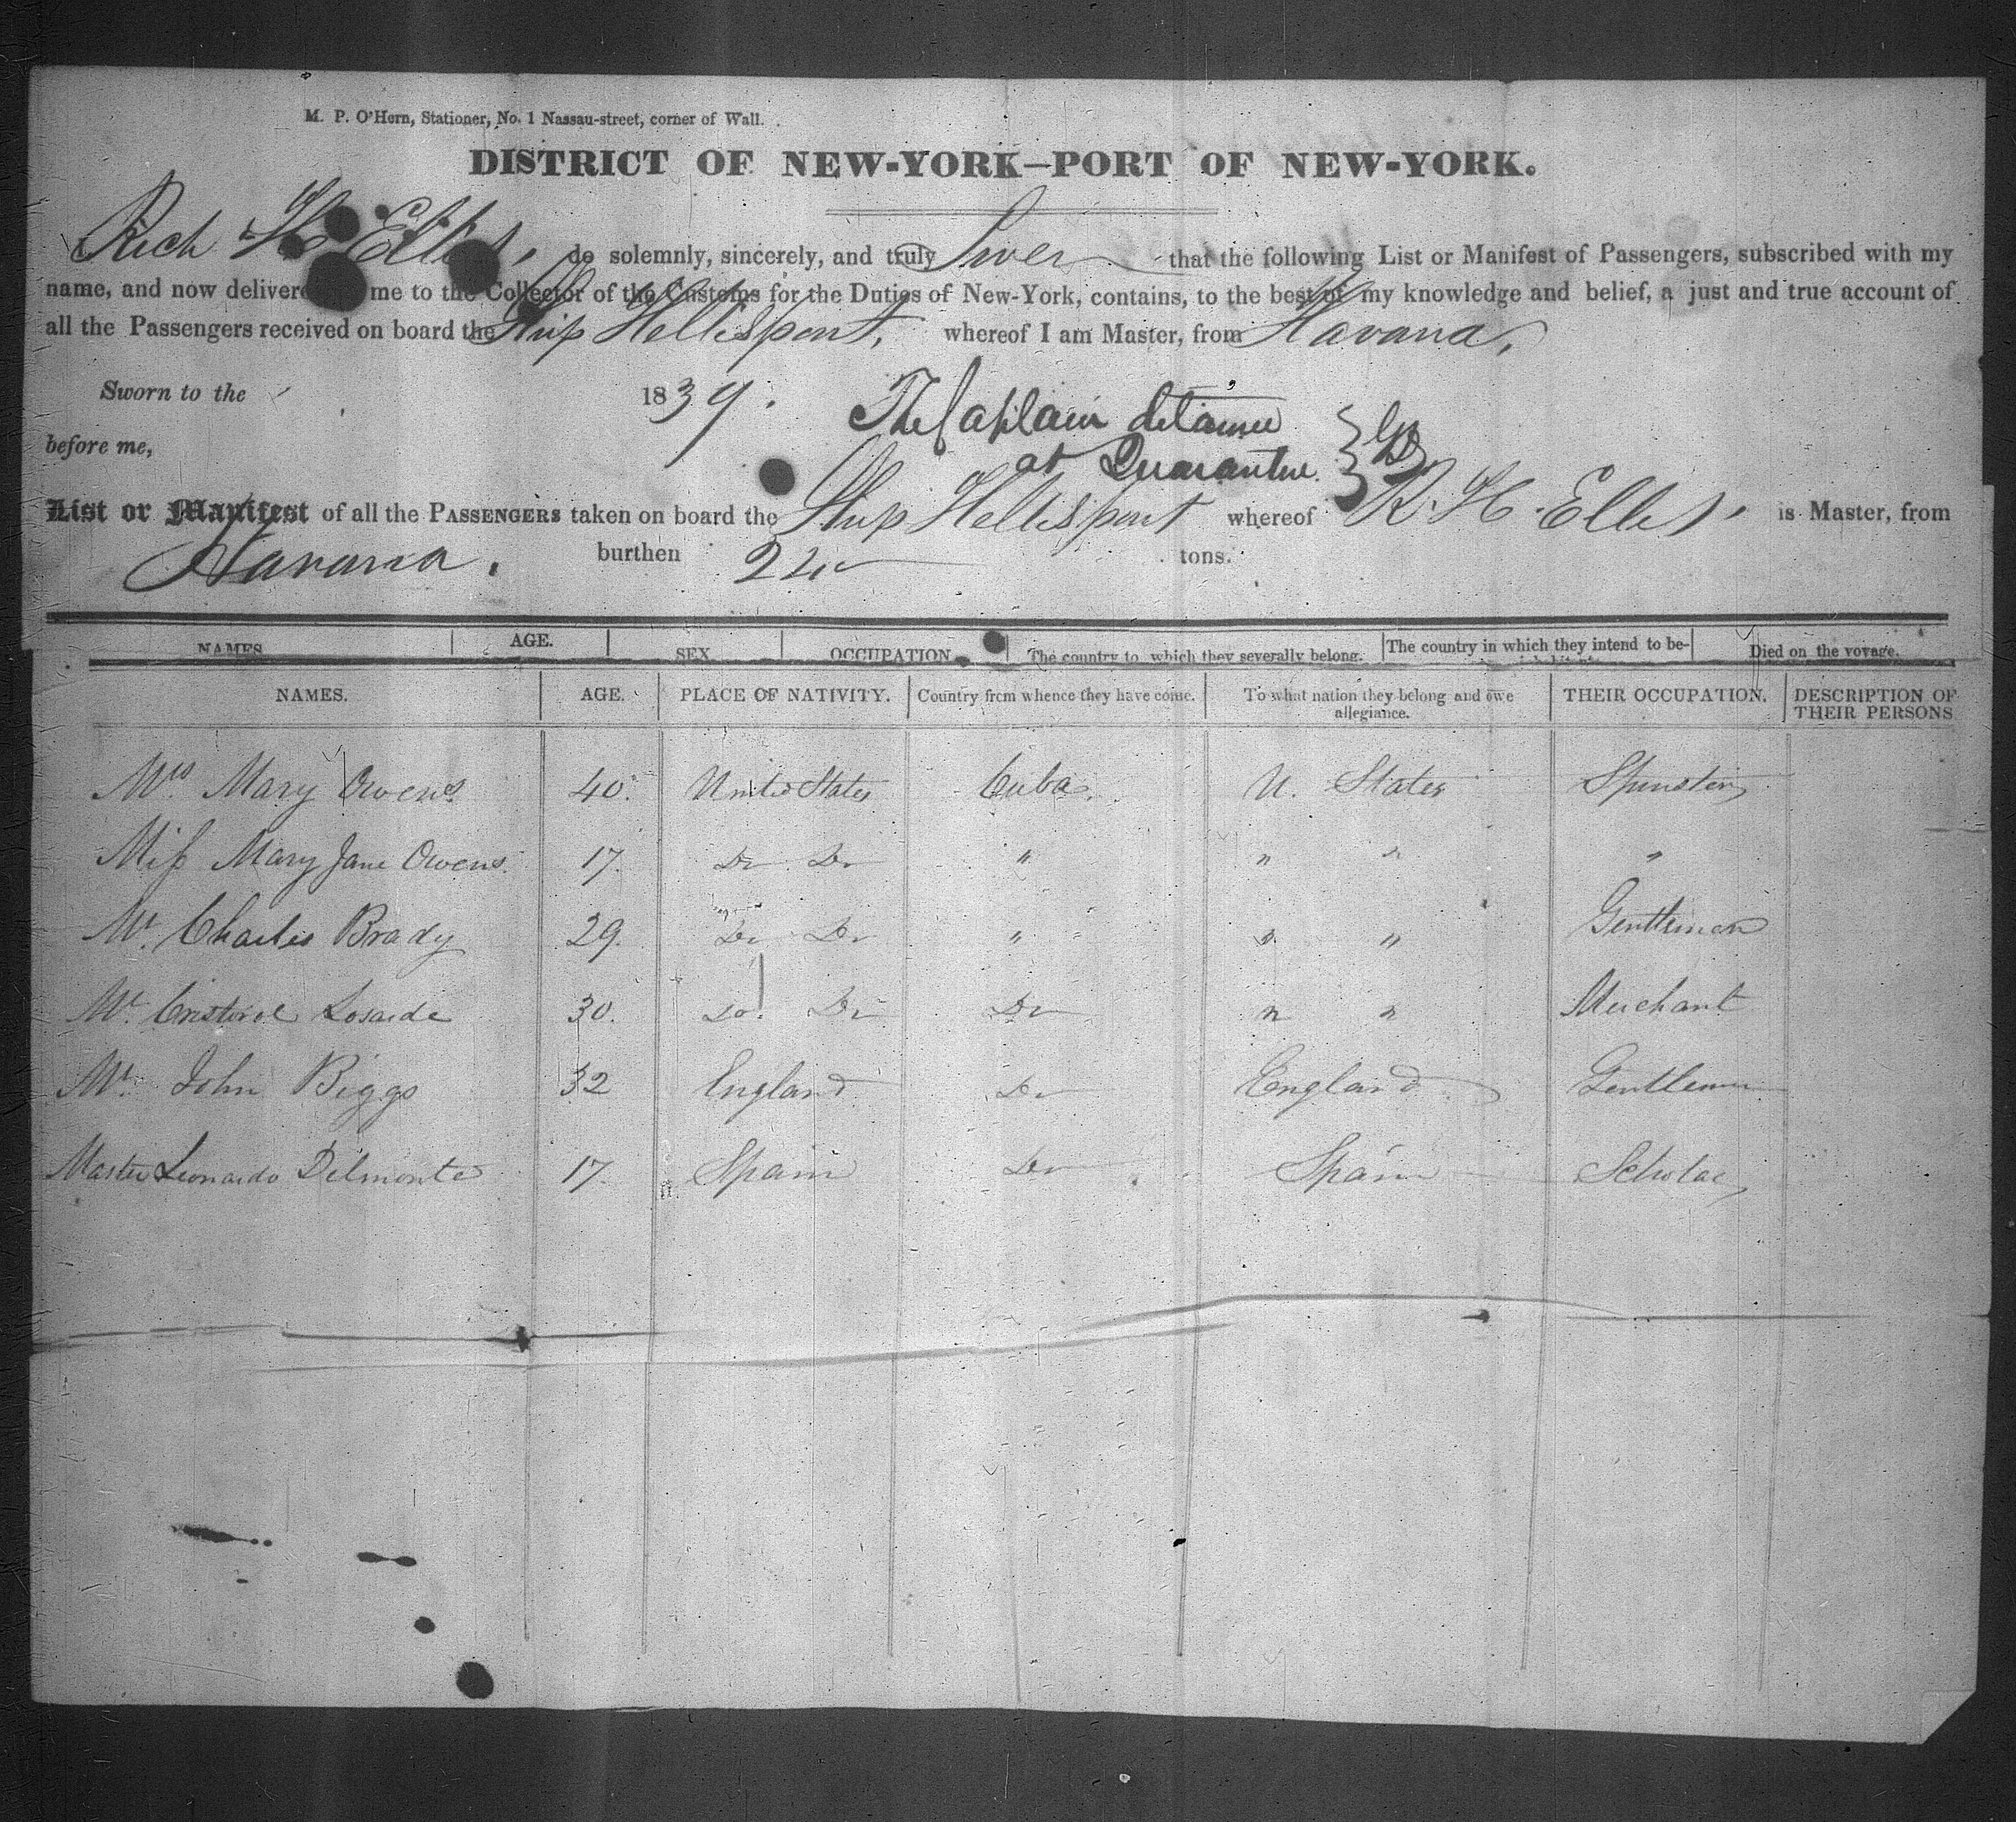 M. P. O'Hern, Stationer, No. 1 Nassau-street, corner of Wall.
DISTRICT OF NEW-YORK—PORT OF NEW-YORK.
Rich H Ellis, do solemnly, sincerely, and truly Swear that the following List or Manifest of Passengers, subscribed with my
name, and now delivered me to the Collector of the Customs for the Duties of New-York, contains, to the best of my knowledge and belief, a just and true account of
all the Passengers received on board the Ship Hellespont, whereof I am Master, from Havana,
Sworn to the 1839. The Captain detained
before me, at Quarantine
List or Manifest of all the PASSENGERS taken on board the Ship Hellespont whereof R. H. Ellis, is Master, from
Havana, burthen tons.
NAMES AGE. SEX OCCUPATION The country to which they severally belong. The country in which they intend to be- Died on the voyage.
NAMES. AGE. PLACE OF NATIVITY. Country from whence they have come. To what nation they belong and owe allegiance. THEIR OCCUPATION. DESCRIPTION OF THEIR PERSONS
Mrs Mary Owens 40. United States Cuba. U. States Spinster
Miss Mary Jane Owens. 17. Do Do " " " "
Mr. Charles Brady 29. Do Do " " " " Gentleman
Mr. Cristovol Losaide 30. Do. Do Do " " Merchant
Mr. John Biggs 32 England Do England Gentleman
Master Leonardo Delmonte 17. Spain Do Spain Scholar